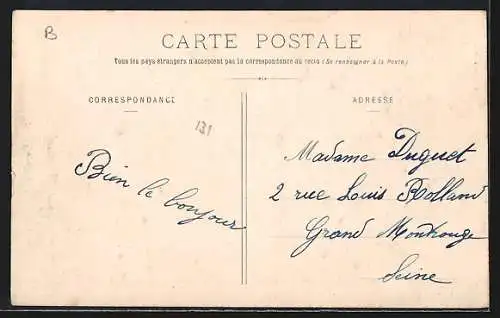 B
CARTE POSTALE
Tous les pays étrangers n'acceptent pas la correspondance au recto (Se renseigner à la Poste)
CORRESPONDANCE
131
Bien le bonjour
ADRESSE
Madame Duguet
2 rue Louis Rolland
Grand Montrouge
Seine